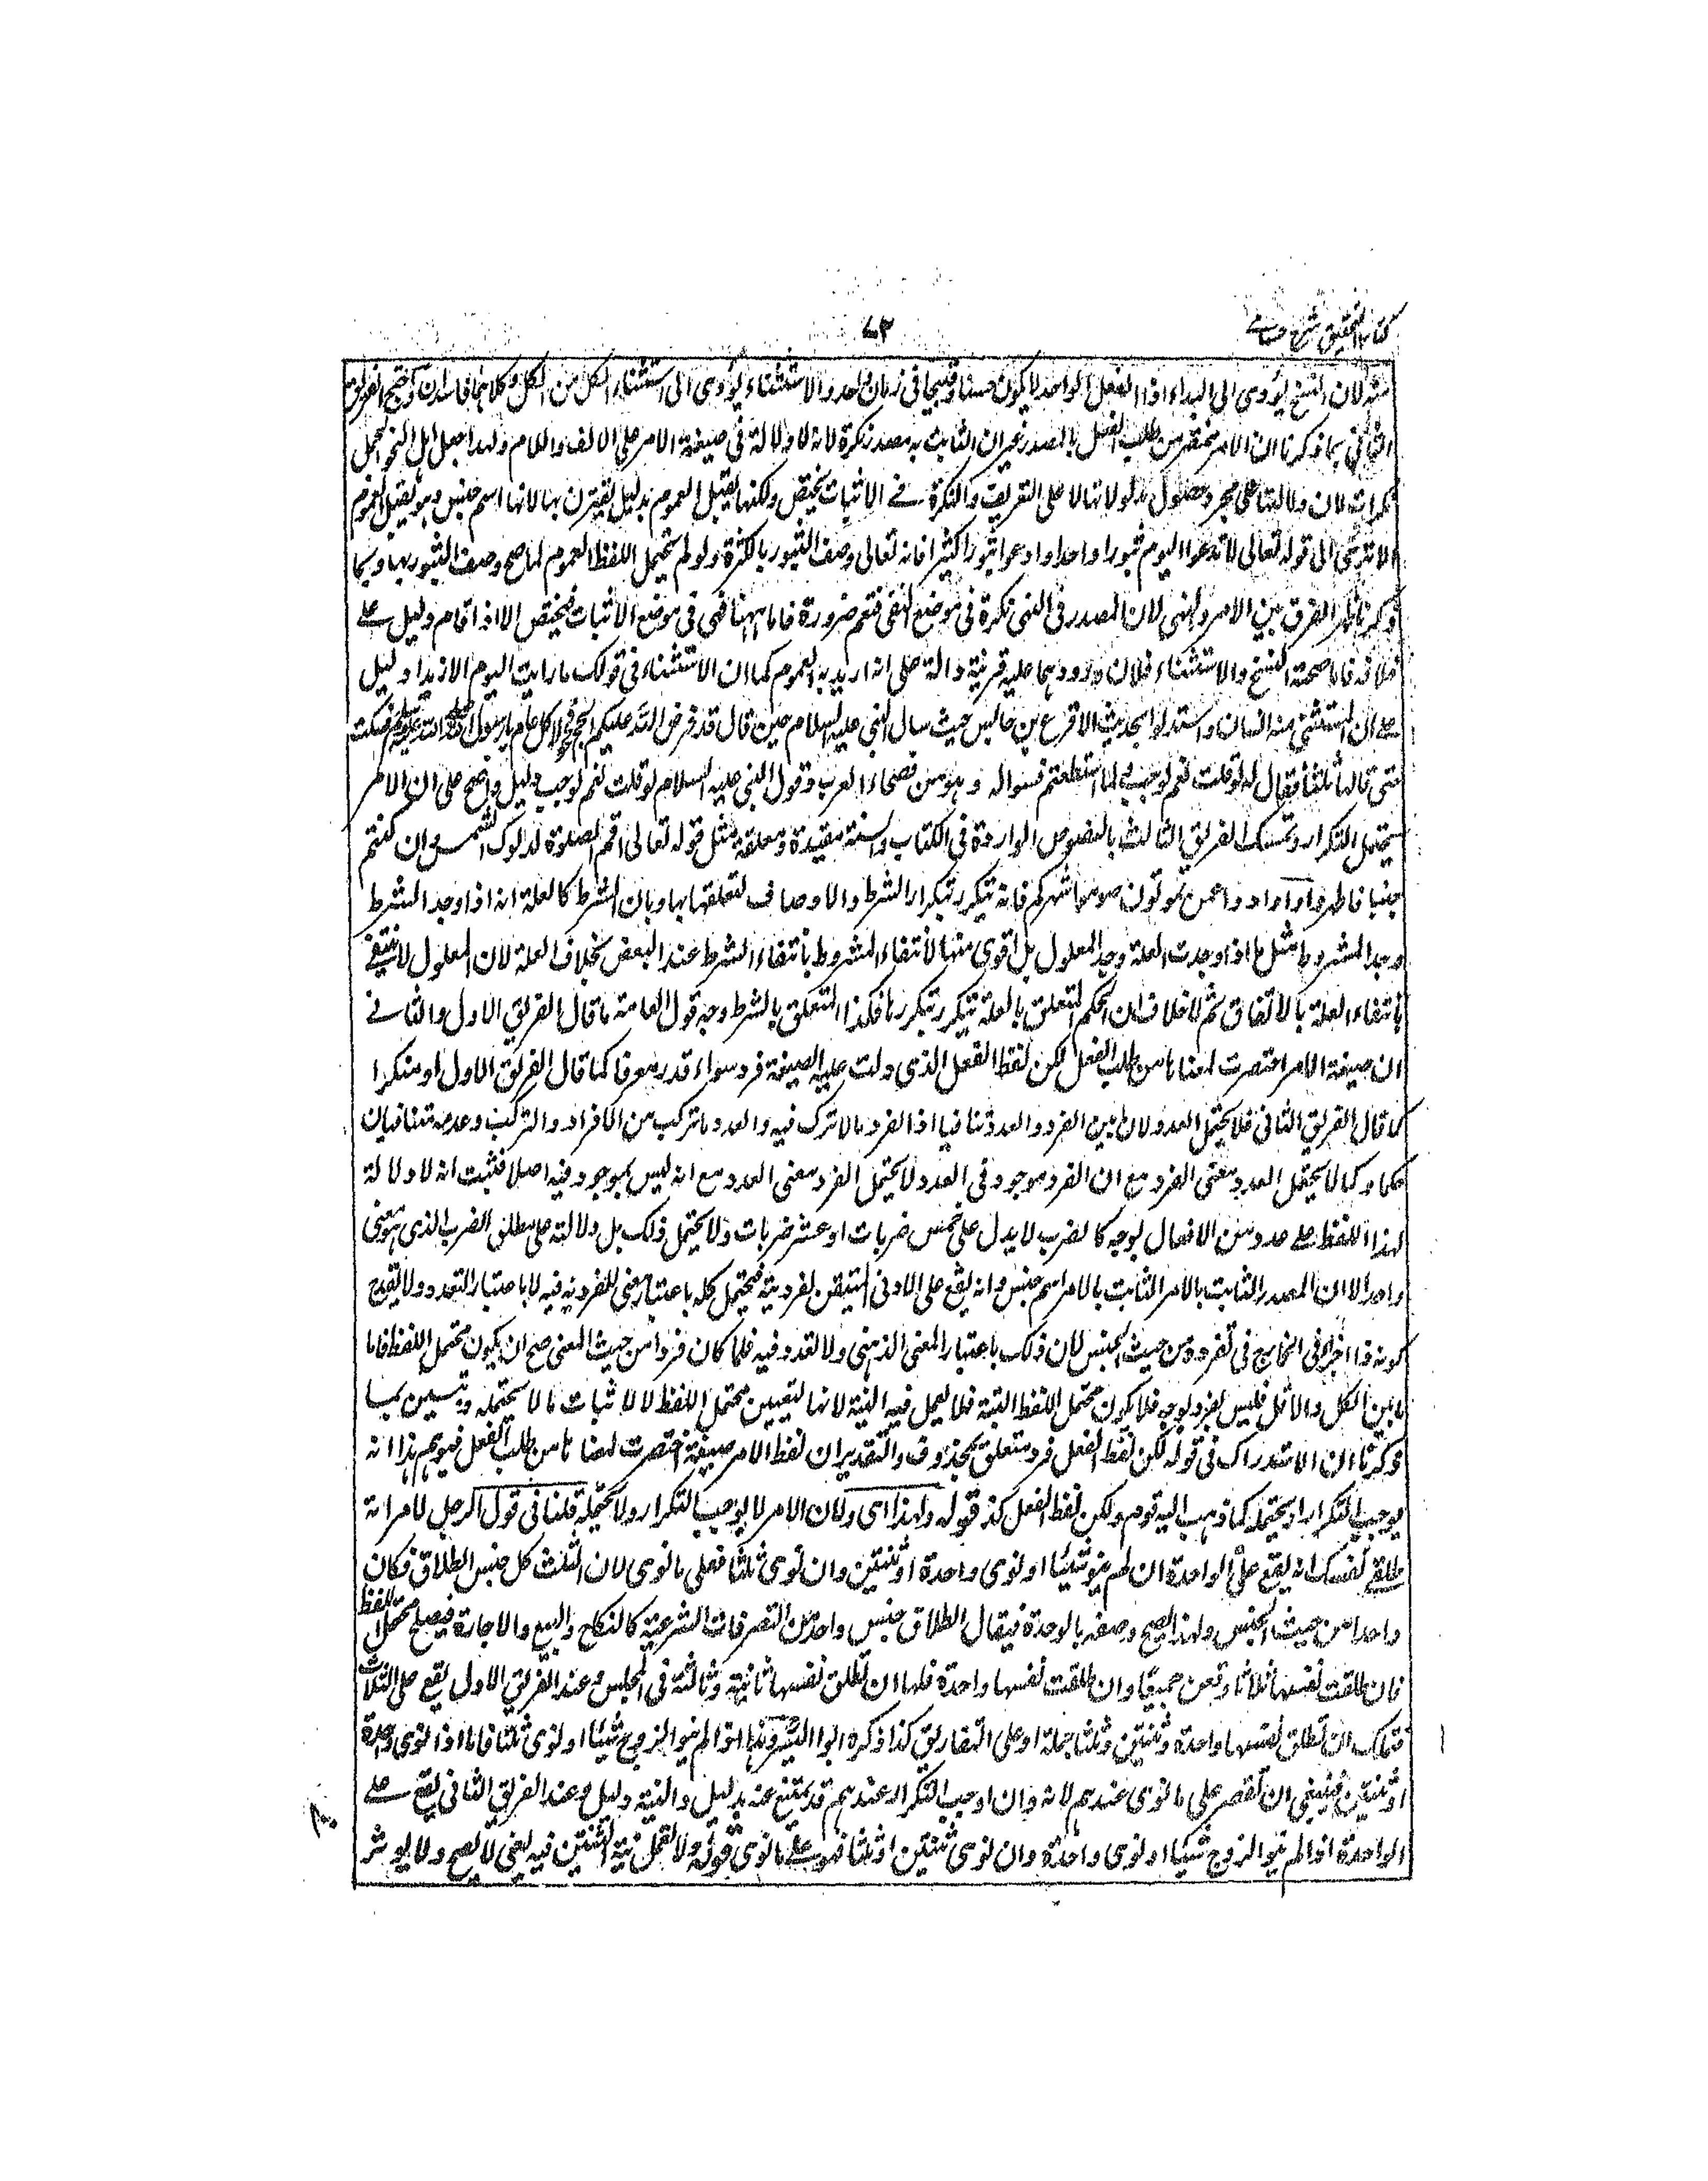 كتاب التحقيق شرح حسامي
٧٣
منه لان النسخ يؤدى الى البداء اذ الفعل الواحد لا يكون حسنا وقبيحا فى زمان واحد والاستثناء يؤدى الى استثناء الكل من الكل وكلاهما فاسدان واحتج الفريق
الثانى بما ذكرنا ان الامر مختصر من طلب الفعل بالمصدر غير ان الثابت به مصدر نكرة لانه لا دلالة فى صيغة الامر على الالف واللام ولهذا جعل اهل النحو الجمل
نكرات لان دلالتها على مجرد حصول مدلولاتها لا على التعريف والنكرة فى الاثبات يختص ولكنها يقبل العموم بدليل يقترن بها لانها اسم جنس وهو يقبل العموم
الا ترى الى قوله تعالى لا تدعوا اليوم ثبورا واحدا وادعوا ثبورا كثيرا فانه تعالى وصف الثبور بالكثرة ولو لم يحتمل اللفظ العموم لما صح وصف الثبور بها وبما
ذكرنا ظهر الفرق بين الامر والنهى لان المصدر فى النهى نكرة فى موضع النفى فتعم ضرورة فاما ههنا فهى فى موضع الاثبات فيختص الا اذا قام دليل على
خلافه فاما صحة النسخ والاستثناء فلان ورودهما عليه قرينة دالة على انه اريد به العموم كما ان الاستثناء فى قولك ما رايت اليوم الا زيدا دليل
على ان المستثنى منه انسان واستدلوا بحديث الاقرع بن حابس حيث سال النبى عليه السلام حين قال قد فرض الله عليكم الحج فحجوا اكل عام يا رسول الله صلى الله عليه وسلم فسكت
حتى قالها ثلثا فقال له لو قلت نعم لوجب ولما استطعتم فسواله وهو من فصحاء العرب وقول النبى عليه السلام لو قلت نعم لوجب دليل واضح على ان الامر
يحتمل التكرار وتمسك الفريق الثالث بالنصوص الواردة فى الكتاب والسنة مقيدة ومعلقة مثل قوله تعالى اقم الصلوة لدلوك الشمس وان كنتم
جنبا فاطهروا وادوا عمن تمونون صوموا شهركم فانه يتكرر بتكرار الشرط والاوصاف لتعلقها بها وبان الشرط كالعلة انه اذا وجد الشرط
وجد المشروط مثل ما اذا وجدت العلة وجد المعلول بل اقوى منها لانتفاء المشروط بانتفاء الشرط عند البعض بخلاف العلة لان المعلول لا ينتفى
بانتفاء العلة بالاتفاق ثم لا خلاف ان الحكم المتعلق بالعلة يتكرر بتكررها فكذا المتعلق بالشرط وجه قول العامة ما قال الفريق الاول والثانى
ان صيغة الامر اختصرت لمعناها من طلب الفعل لكن لفظ الفعل الذى دلت عليه الصيغة فرد سواء قدر معرفا كما قال الفريق الاول او منكرا
كما قال الفريق الثانى فلا يحتمل العدد لان بين الفرد والعدد تنافيا اذ الفرد ما لا تركب فيه والعدد ما تركب من الافراد والتركب وعدمه متنافيان
فكما وكما لا يحتمل العدد معنى الفرد مع ان الفرد موجود فى العدد لا يحتمل الفرد معنى العدد مع انه ليس بموجود فيه اصلا فثبت انه لا دلالة
لهذا اللفظ على عدد من الافعال بوجه كالضرب لا يدل على خمس ضربات او عشر ضربات ولا يحتمل ذلك بل دلالته على مطلق الضرب الذى هو معنى
واحد الا ان المصدر الثابت بالامر الثابت بالامر اسم جنس وانه يقع على الادنى المتيقن لفرديته فيحتمل كله باعتبار معنى للفردية فيه لا باعتبار التعدد ولا يقدح
كونه ذا اجزاء فى الخارج فى تفرده من حيث الجنس لان ذلك باعتبار المعنى الذهنى ولا تعدد فيه فلما كان فردا من حيث المعنى صح ان يكون محتمل اللفظ فاما
ما بين الكل والاقل فليس بفرد بوجه فلا يكون محتمل اللفظ البتة فلا يعمل فيه النية لانها لتعيين محتمل اللفظ لا لاثبات ما لا يحتمله وتبين بما
ذكرنا ان الاستدراك فى قوله لكن لفظ الفعل فرد متعلق بمحذوف والتقدير ان لفظ الامر صيغة اختصرت لمعناها من طلب الفعل فيوهم هذا انه
يوجب التكرار او يحتمله كما ذهب اليه قوم ولكن لفظ الفعل كذ قوله ولهذا اى ولان الامر لا يوجب التكرار ولا يحتمله قلنا فى قول الرجل لامراته
طلقى نفسك انه يقع على الواحدة ان لم ينو شيئا او نوى واحدة او ثنتين وان نوى ثلثا فعلى ما نوى لان الثلث كل جنس الطلاق فكان
واحدا من حيث الجنس ولهذا يصح وصفه بالوحدة فيقال الطلاق جنس واحد من التصرفات الشرعية كالنكاح والبيع والاجارة فيصلح محتمل اللفظ
فان طلقت نفسها ثلاثا وقعن جميعا وان طلقت نفسها واحدة فلها ان تطلق نفسها ثانية وثالثة فى المجلس وعند الفريق الاول يقع على الثلاث
فتملك ان تطلق نفسها واحدة وثنتين وثلثا جملة او على التفاريق كذا ذكره ابو اليسر وهذا اذا لم ينو الزوج شيئا او نوى ثلثا فاما اذا نوى واحدة
او ثنتين فينبغى ان تقصر على ما نوى عندهم لانه وان اوجب التكرار عندهم قد يمتنع عنه بدليل والنية دليل وعند الفريق الثانى يقع على
الواحدة اذا لم ينو الزوج شيئا او نوى واحدة وان نوى ثنتين او ثلثا فهو على ما نوى قوله ولا تعمل نية الثنتين فيه يعنى لا يصح ولا يوثر